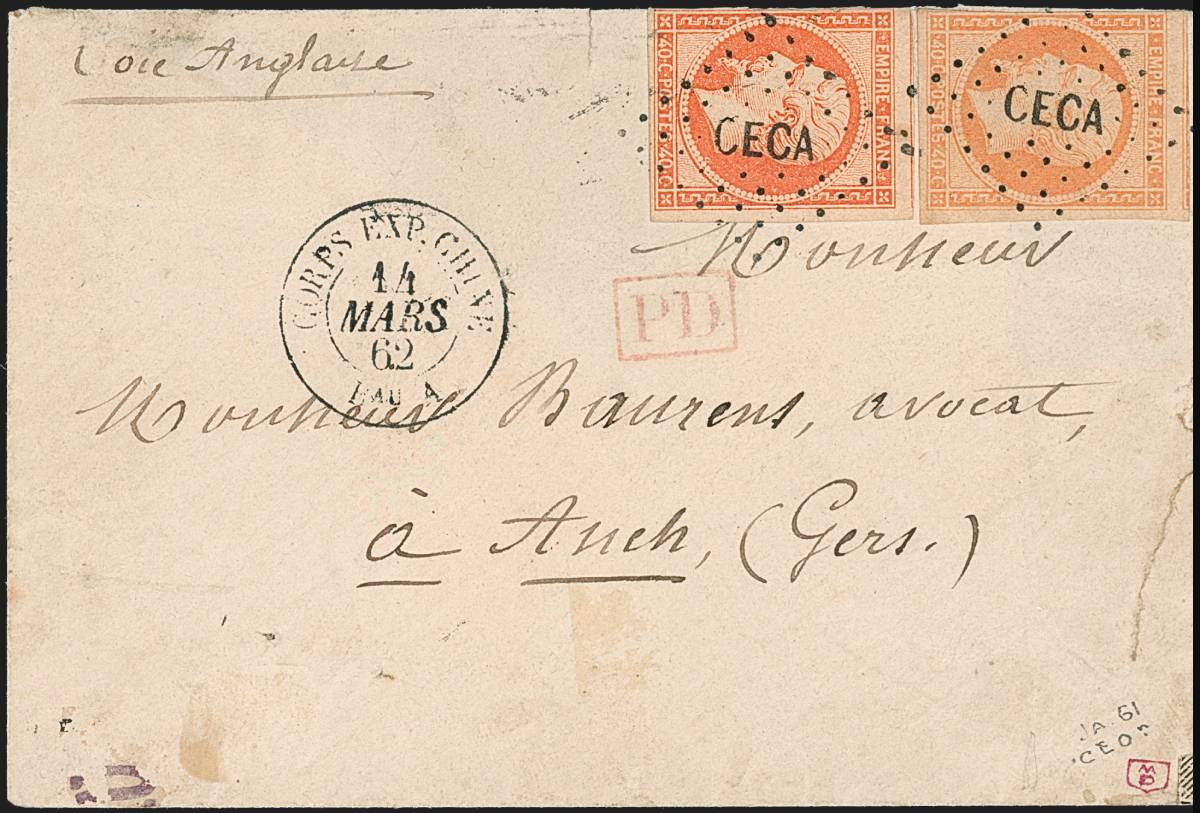 Voie Anglaise
EMPIRE FRANC.
40·C·POSTES·40·C
CECA
EMPIRE FRANC.
40·C·POSTES·40·C
CECA
Monsieur
CORPS EXP. CHINE
14
MARS
62
BAU A
PD
Monsieur Baurens, avocat,
à Auch, (Gers.)
JA 61